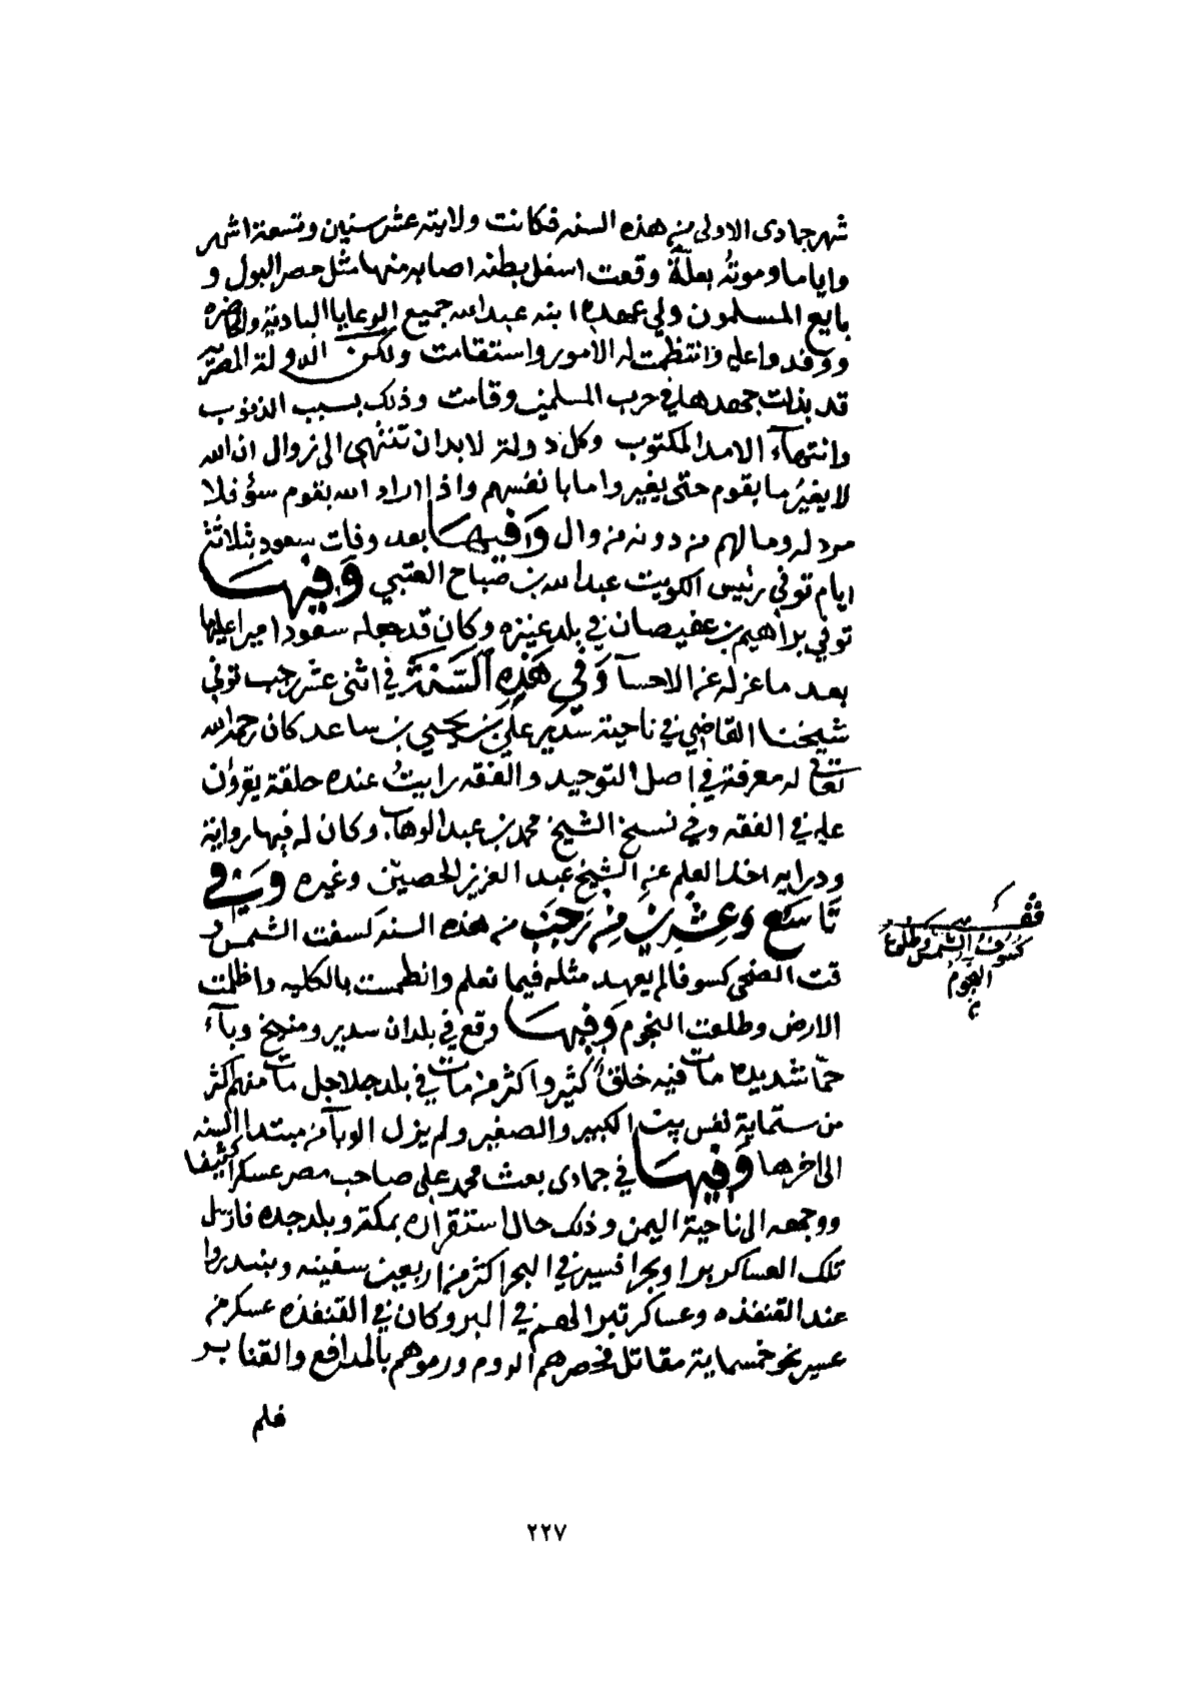 شهر جمادى الاولى من هذه السنه فكانت ولايته عشر سنين وتسعة اشهر
واياما وموته بعلّة وقعت اسفل بطنه اصابه منها مثل حصر البول و
بايع المسلمون ولي عهده ابنه عبدالله جميع الرعايا البادية والحاضره
ووفدوا عليه وانتظمت له الامور واستقامت ولكن الدولة المصريه
قد بذلت جهدها في حرب المسلمين وقامت وذلك بسبب الذنوب
وانتهآء الامد المكتوب وكل دولة لابد ان تنتهي الى زوال ان الله
لا يغيرُ ما بقوم حتى يغيروا ما بانفسهم واذا اراد الله بقوم سؤ فلا
مرد له وما لهم من دونه من وال وَفيهَا بعد وفات سعود بثلاثة
ايام توفي رئيس الكويت عبدالله بن صباح العتبي وَفِيهَا
توفي براهيم بن عفيصان في بلد عنيزه وكان قد جعله سعود اميرا عليها
بعد ما عزله عن الاحسآ وَفي هَذِهِ السَّنَة في اثنى عشر رجب توفي
شيخنا القاضي في ناحية سدير علي بن يحيي بن ساعد كان رحمه الله
تعالى له معرفة في اصل التوحيد والفقه رايتُ عنده حلقة يقرؤن
عليه في الفقه وفي نسخ الشيخ محمد بن عبدالوهاب وكان له فيها رواية
ودرايه اخذ العلم عن الشيخ عبد العزيز الحصين وغيره وَفي
تَاسَع وَعِشرِينَ مِنْ رَجَبَ من هذه السنه كسفت الشمس و
قت الضحى كسوفا لم يعهد مثله فيما نعلم وانطمست بالكليه واظلمت
الارض وطلعت النجوم وَفيهَا وقع في بلدان سدير ومنيخ وبآء
حمّا شديده مات فيه خلقٌ كثير واكثر من مات في بلد جلاجل مات منهم اكثر
من ستماية نفس بيت الكبير والصغير ولم يزل الوبآ من مبتدا السنه
الى اخرها وَفيهَا في جمادى بعث محمد علي صاحب مصر عسكرا كثيفا
ووجهه الى ناحية اليمن وذلك حال استقراره بمكة وبلد جده فارسل
تلك العساكر برا وبحرا فسير في البحر اكثر من اربعين سفينه وبندروا
عند القنفذه وعساكر تبرا لهم في البر وكان في القنفذه عسكر من
عسير نحو خمسماية مقاتل فحصرهم الروم ورموهم بالمدافع والقنابر
فلم
كسوف الشمس وطلوع
النجوم
٢٢٧